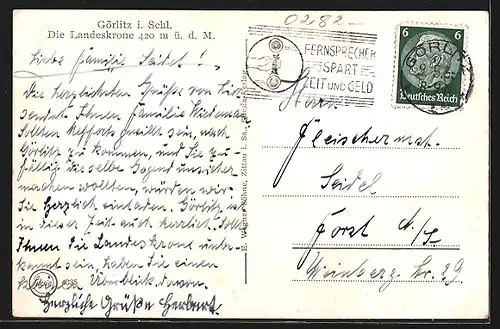 Görlitz i. Schl.
Die Landeskrone 420 m ü. d. M.
Liebe Familie Seidel!
Die herzlichsten Grüße von hier
sendet Ihnen Familie
Sollten gewillt sein, nach
Görlitz zu kommen, und Sie zu-
fällig die selbe Gegend unsicher
machen wollten, würden wir
Sie herzlich einladen. Görlitz ist
in dieser Zeit auch herrlich. Sollt
Ihnen die Landeskrone unbe-
kannt sein, haben Sie einen
Überblick davon.
Herzliche Grüße Herbert.
4035
E. Wagner Söhne, Zittau i. Sa.
0282-
FERNSPRECHER
SPART
ZEIT UND GELD
GÖRLITZ
6 6
Deutsches Reich
Herrn
Fleischermst.
Seidel
Forst N/L
Weinberg. Str. 29